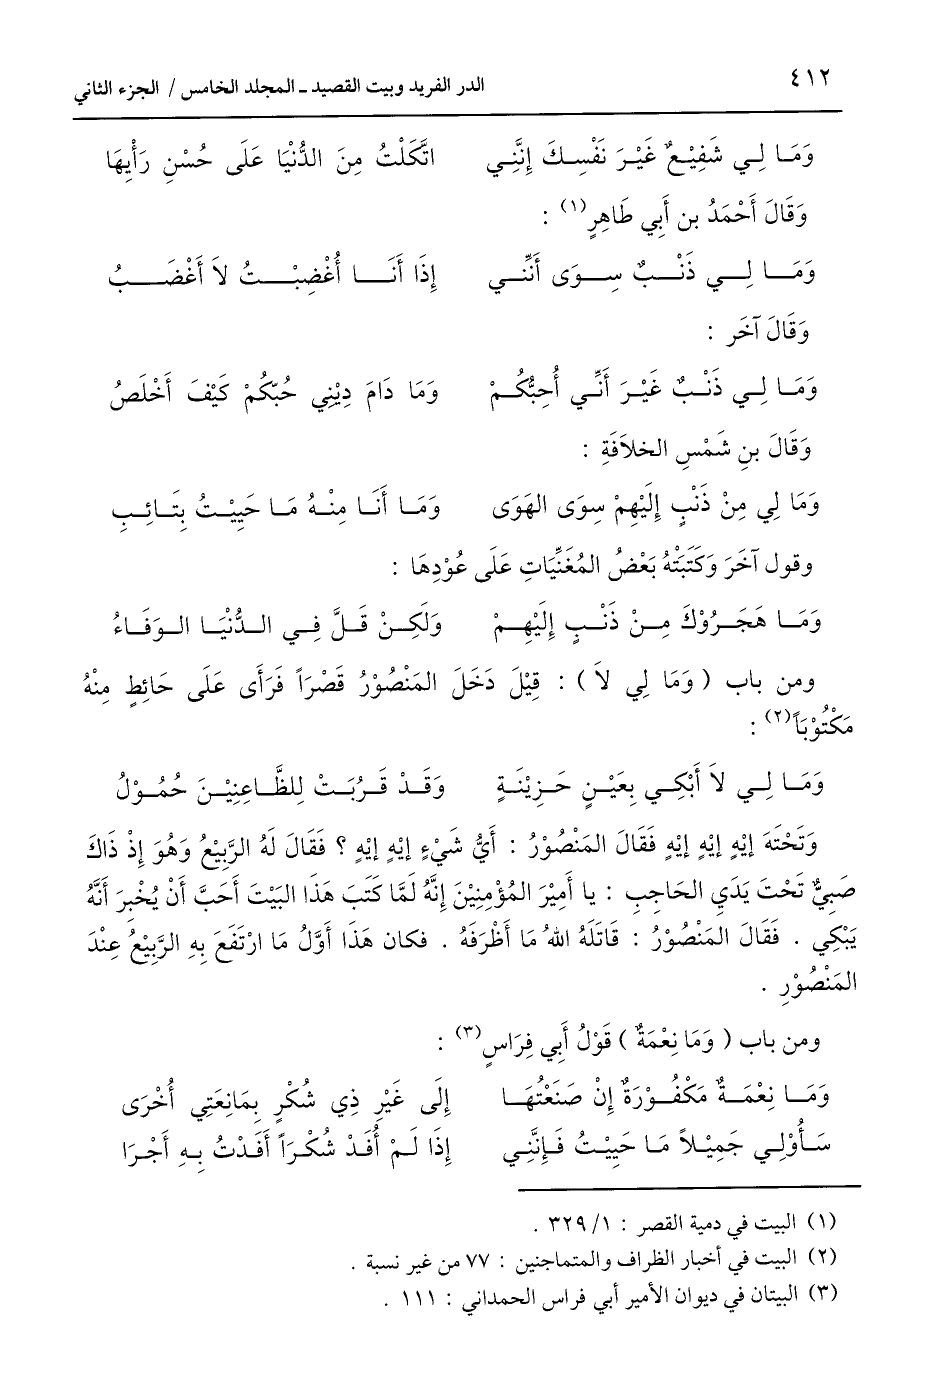 ٤١٢ الدر الفريد وبيت القصيد ـ المجلد الخامس / الجزء الثاني
وَمَا لِي شَفِيْعٌ غَيْرَ نَفْسِكَ إِنَّنِي اتَّكَلْتُ مِنَ الدُّنْيَا عَلَى حُسْنِ رَأْيِهَا
وَقَالَ أَحْمَدُ بن أَبِي طَاهِرٍ(١) :
وَمَا لِي ذَنْبٌ سِوَى أَنَّنِي إِذَا أَنَا أُغْضِبْتُ لاَ أَغْضَبُ
وَقَالَ آخَر :
وَمَا لِي ذَنْبٌ غَيْرَ أَنِّي أُحِبُّكُمْ وَمَا دَامَ دِيْنِي حُبّكُمْ كَيْفَ أَخْلَصُ
وَقَالَ بنِ شَمْسِ الخلاَفَةِ :
وَمَا لِي مِنْ ذَنْبٍ إِلَيْهِمْ سِوَى الهَوَى وَمَا أَنَا مِنْهُ مَا حَيِيْتُ بِتَائِبِ
وقول آخَرَ وَكَتَبَتْهُ بَعْضُ المُغَنِّيَاتِ عَلَى عُوْدِهَا :
وَمَا هَجَرُوْكَ مِنْ ذَنْبٍ إِلَيْهِمْ وَلَكِنْ قَلَّ فِي الدُّنْيَا الوَفَاءُ
ومن باب ( وَمَا لِي لاَ ) : قِيْلَ دَخَلَ المَنْصُوْرُ قَصْرَاً فَرَأَى عَلَى حَائِطٍ مِنْهُ
مَكْتُوْبَاً(٢) :
وَمَا لِي لاَ أَبْكِي بِعَيْنٍ حَزِيْنَةٍ وَقَدْ قَرُبَتْ لِلظَّاعِنِيْنَ حُمُوْلُ
وَتَحْتَهَ إِيْهِ إِيْهِ إِيْهِ فَقَالَ المَنْصُوْرُ : أَيُّ شَيْءٍ إِيْهِ إِيْهِ ؟ فَقَالَ لَهُ الرَّبِيْعُ وَهُوَ إِذْ ذَاكَ
صَبِيٌّ تَحْتَ يَدَي الحَاجِبِ : يا أَمِيْرَ المُؤْمِنِيْنَ إِنَّهُ لَمَّا كَتَبَ هَذَا البَيْتَ أَحَبَّ أَنْ يُخْبِرَ أَنَّهُ
يَبْكِي . فَقَالَ المَنْصُوْرُ : قَاتَلَهُ اللهُ مَا أَظْرَفَهُ . فكان هَذَا أَوَّلُ مَا ارْتَفَعَ بِهِ الرَّبِيْعُ عِنْدَ
المَنْصُوْرِ .
ومن باب ( وَمَا نِعْمَةٌ ) قَوْلُ أَبِي فِرَاسٍ(٣) :
وَمَا نِعْمَةٌ مَكْفُوْرَةٌ إِنْ صَنَعْتُهَا إِلَى غَيْرِ ذِي شُكْرٍ بِمَانِعَتِي أُخْرَى
سَأُوْلِي جَمِيْلاً مَا حَيِيْتُ فَإِنَّنِي إِذَا لَمْ أُفَدْ شُكْرَاً أَفَدْتُ بِهِ أَجْرَا
(١) البيت في دمية القصر : ١/ ٣٢٩ .
(٢) البيت في أخبار الظراف والمتماجنين : ٧٧ من غير نسبة .
(٣) البيتان في ديوان الأمير أبي فراس الحمداني : ١١١ .